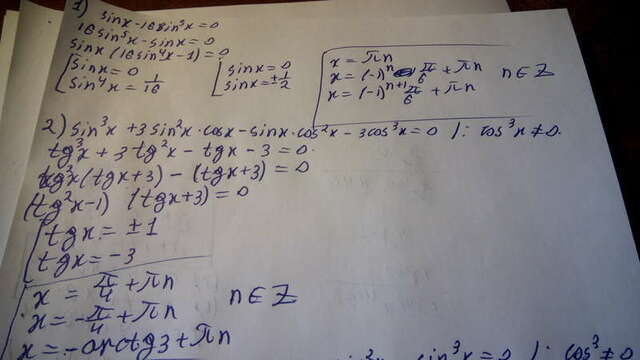 1) sinx-16sin⁵x=0
16sin⁵x-sinx=0
sinx(16sin⁴x-1)=0
sinx=0
sin⁴x=1/16
sinx=0
sinx=±1/2
x=πn
x=(-1)ⁿ π/6+πn n∈Z
x=(-1)ⁿ⁺¹ π/6+πn
2) sin³x+3sin²x·cosx-sinx·cos²x-3cos³x=0 /: cos³x≠0.
tg³x+3tg²x-tgx-3=0.
tg²x(tgx+3)-(tgx+3)=0
(tg²x-1)(tgx+3)=0
tgx=±1
tgx=-3
x=π/4+πn
x=-π/4+πn n∈Z
x=-arctg3+πn
sin³x=0 /: cos³≠0